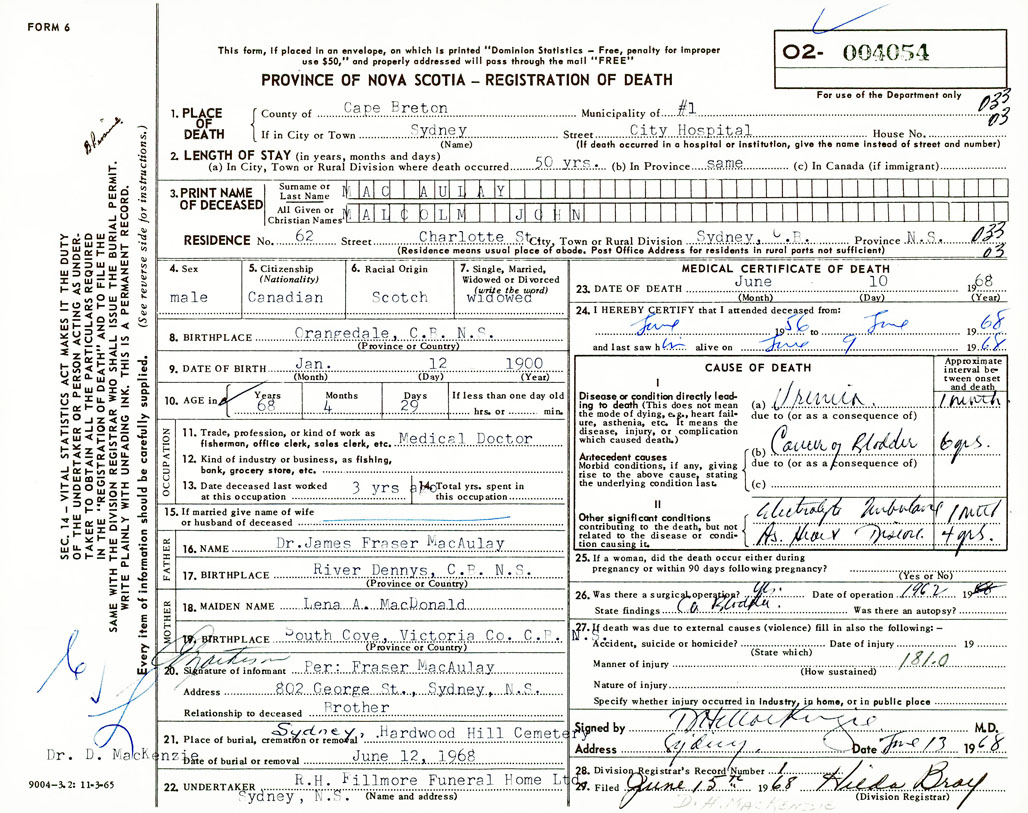 FORM 6
This form, if placed in an envelope, on which is printed "Dominion Statistics – Free, penalty for improper
use $50," and properly addressed will pass through the mail "FREE"
PROVINCE OF NOVA SCOTIA – REGISTRATION OF DEATH
O2- 004054
For use of the Department only
033
03
1. PLACE OF DEATH
County of Cape Breton Municipality of #1
If in City or Town Sydney Street City Hospital House No.
(Name) (If death occurred in a hospital or institution, give the name instead of street and number)
2. LENGTH OF STAY (in years, months and days)
(a) In City, Town or Rural Division where death occurred 50 yrs. (b) In Province same (c) In Canada (if immigrant)
3. PRINT NAME OF DECEASED
Surname or Last Name MAC AULAY
All Given or Christian Names MALCOLM JOHN
RESIDENCE No. 62 Street Charlotte St. City, Town or Rural Division Sydney, C.B. Province N.S. 033
(Residence means usual place of abode. Post Office Address for residents in rural parts not sufficient) 03
4. Sex
male
5. Citizenship
(Nationality)
Canadian
6. Racial Origin
Scotch
7. Single, Married,
Widowed or Divorced
(write the word)
widowed
8. BIRTHPLACE Orangedale, C.B. N.S.
(Province or Country)
9. DATE OF BIRTH Jan. 12 1900
(Month) (Day) (Year)
10. AGE in Years Months Days If less than one day old
68 4 29 hrs. or min.
OCCUPATION
11. Trade, profession, or kind of work as
fisherman, office clerk, sales clerk, etc. Medical Doctor
12. Kind of industry or business, as fishing,
bank, grocery store, etc.
13. Date deceased last worked
at this occupation 3 yrs ago
14. Total yrs. spent in
this occupation
15. If married give name of wife
or husband of deceased
FATHER
16. NAME Dr.James Fraser MacAulay
17. BIRTHPLACE River Dennys, C.B. N.S.
(Province or Country)
MOTHER
18. MAIDEN NAME Lena A. MacDonald
19. BIRTHPLACE South Cove, Victoria Co. C.B. N.S.
(Province or Country)
20. Signature of informant Per: Fraser MacAulay
Address 802 George St., Sydney, N.S.
Relationship to deceased Brother
21. Place of burial, cremation or removal Sydney, Hardwood Hill Cemetery
Date of burial or removal June 12, 1968
22. UNDERTAKER R.H. Fillmore Funeral Home Ltd.
Sydney, N.S. (Name and address)
MEDICAL CERTIFICATE OF DEATH
23. DATE OF DEATH June 10 1968
(Month) (Day) (Year)
24. I HEREBY CERTIFY that I attended deceased from:
June 1956 to June 1968
and last saw him alive on June 9 1968
CAUSE OF DEATH
Approximate
interval be-
tween onset
and death
I
Disease or condition directly lead-
ing to death (This does not mean
the mode of dying, e.g., heart fail-
ure, asthenia, etc. It means the
disease, injury, or complication
which caused death.)
(a) Uremia 1 month
due to (or as a consequence of)
Antecedent causes
Morbid conditions, if any, giving
rise to the above cause, stating
the underlying condition last.
(b) Cancer of Bladder 6 yrs.
due to (or as a consequence of)
(c)
II
Other significant conditions
contributing to the death, but not
related to the disease or condi-
tion causing it.
Electrolyte Imbalance 1 month
As. Heart Disease 4 yrs.
25. If a woman, did the death occur either during
pregnancy or within 90 days following pregnancy?
(Yes or No)
26. Was there a surgical operation? yes. Date of operation 1962 19
State findings Ca Bladder. Was there an autopsy?
27. If death was due to external causes (violence) fill in also the following: –
Accident, suicide or homicide? Date of injury 19
(State which)
Manner of injury 181.0
(How sustained)
Nature of injury
Specify whether injury occurred in industry, in home, or in public place
Signed by D H MacKenzie M.D.
Address Sydney. Date June 13 1968
28. Division Registrar's Record Number 1
29. Filed June 15th 1968 Hilda Bray
(Division Registrar)
D.H. MACKENZIE
SEC. 14 – VITAL STATISTICS ACT MAKES IT THE DUTY
OF THE UNDERTAKER OR PERSON ACTING AS UNDER-
TAKER TO OBTAIN ALL THE PARTICULARS REQUIRED
IN THE "REGISTRATION OF DEATH" AND TO FILE THE
SAME WITH THE DIVISION REGISTRAR WHO SHALL ISSUE THE BURIAL PERMIT.
WRITE PLAINLY WITH UNFADING INK. THIS IS A PERMANENT RECORD.
Every item of information should be carefully supplied. (See reverse side for instructions.)
Dr. D. MacKenzie
9004–3.2: 11-3-65